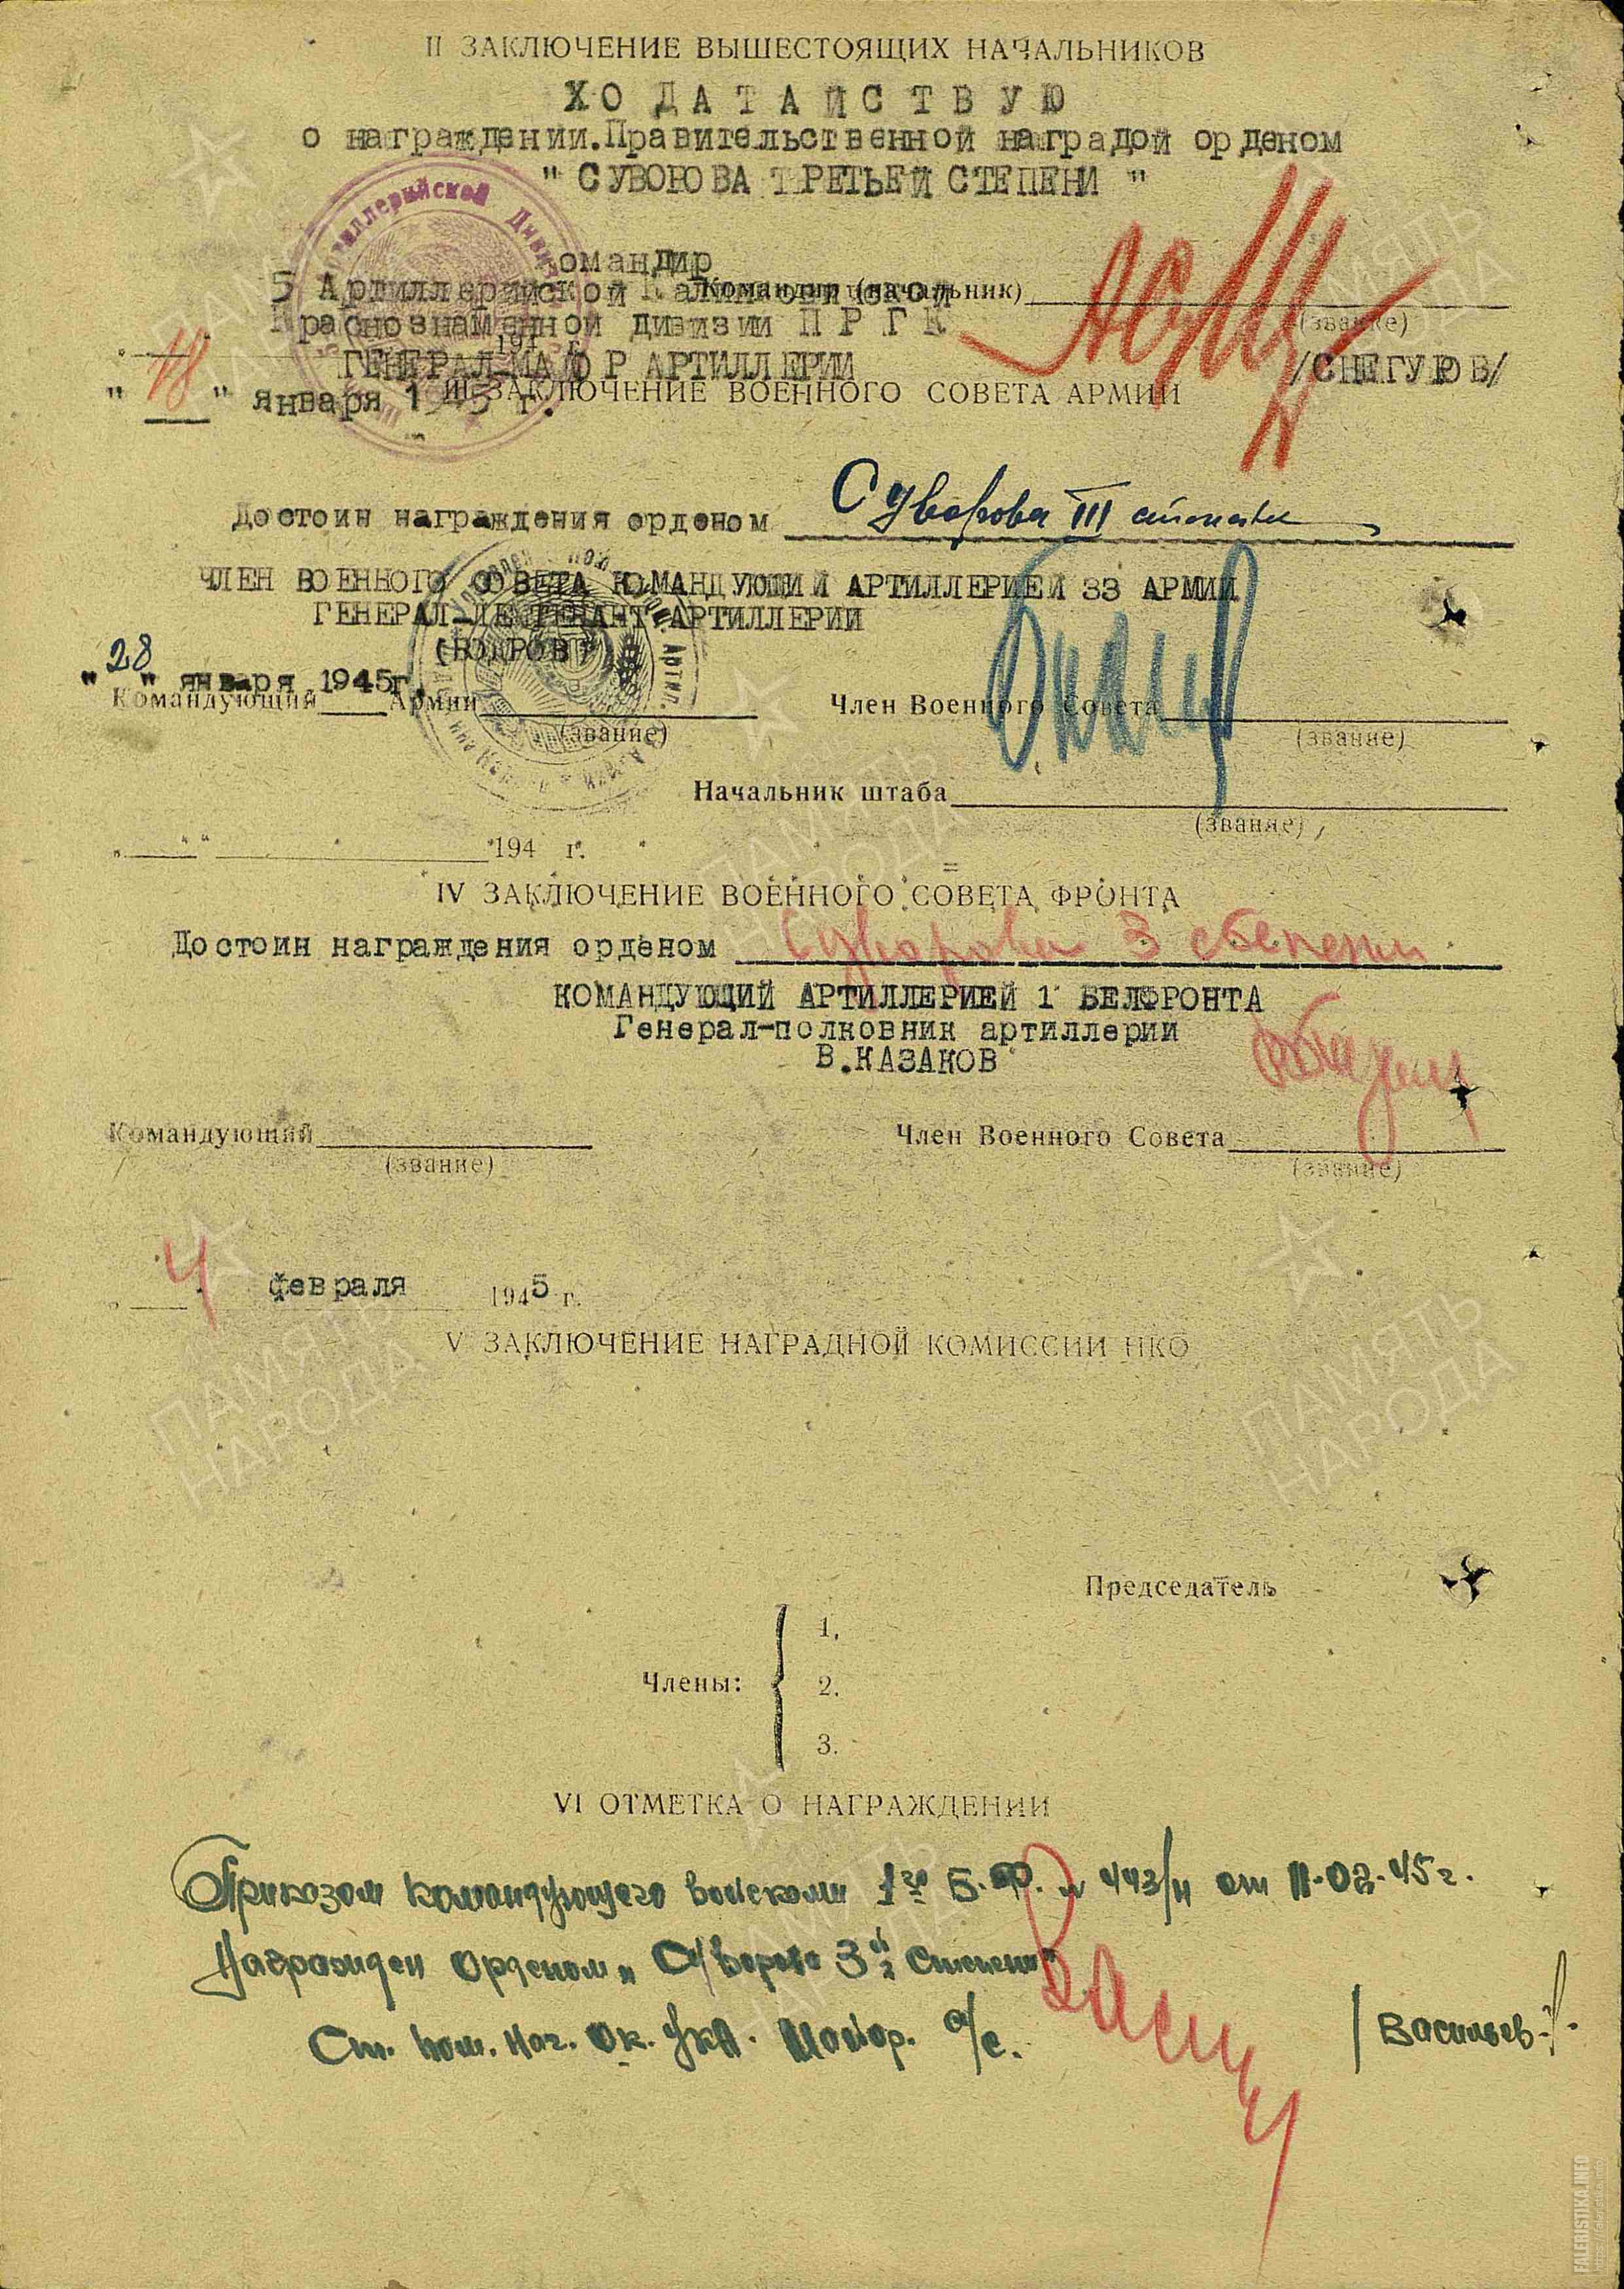 II ЗАКЛЮЧЕНИЕ ВЫШЕСТОЯЩИХ НАЧАЛЬНИКОВ
ХО ДАТАЙСТВУЮ
о награждении.Правительственной наградой орденом
" СУВОРОВА ТРЕТЬЕЙ СТЕПЕНИ "
Командир
5 Артиллерийской Калинковичской
Командир (начальник)
Краснознаменной дивизии П Р Г К
(звание)
194 г.
ГЕНЕРАЛ-МАЙОР АРТИЛЛЕРИИ
/СНЕГУРОВ/
" 18 " января 1945 г.
III ЗАКЛЮЧЕНИЕ ВОЕННОГО СОВЕТА АРМИИ
Достоин награждения орденом Суворова III степени
ЧЛЕН ВОЕННОГО СОВЕТА КОМАНДУЮЩИЙ АРТИЛЛЕРИЕЙ 33 АРМИИ
ГЕНЕРАЛ-ЛЕЙТЕНАНТ АРТИЛЛЕРИИ
(БОДРОВ)
"28" января 1945г.
Командующий Армии
Член Военного Совета
(звание)
(звание)
Начальник штаба
(звание)
" " 194 г.
IV ЗАКЛЮЧЕНИЕ ВОЕННОГО СОВЕТА ФРОНТА
Достоин награждения орденом Суворова 3 степени
КОМАНДУЮЩИЙ АРТИЛЛЕРИЕЙ 1 БЕЛФРОНТА
Генерал-полковник артиллерии
В.КАЗАКОВ
Командующий
Член Военного Совета
(звание)
(звание)
" 4 " февраля 1945 г.
V ЗАКЛЮЧЕНИЕ НАГРАДНОЙ КОМИССИИ НКО
Председатель
1.
Члены:
2.
3.
VI ОТМЕТКА О НАГРАЖДЕНИИ
Приказом командующего войсками 1го Б.Ф. № 443/н от 11.02.45г.
Награжден Орденом „Суворова 3й степени"
Ст. пом. нач. Ок. УКА. Майор. а/с. /Васильев/.
ПАМЯТЬ
НАРОДА
FALERISTIKA.INFO